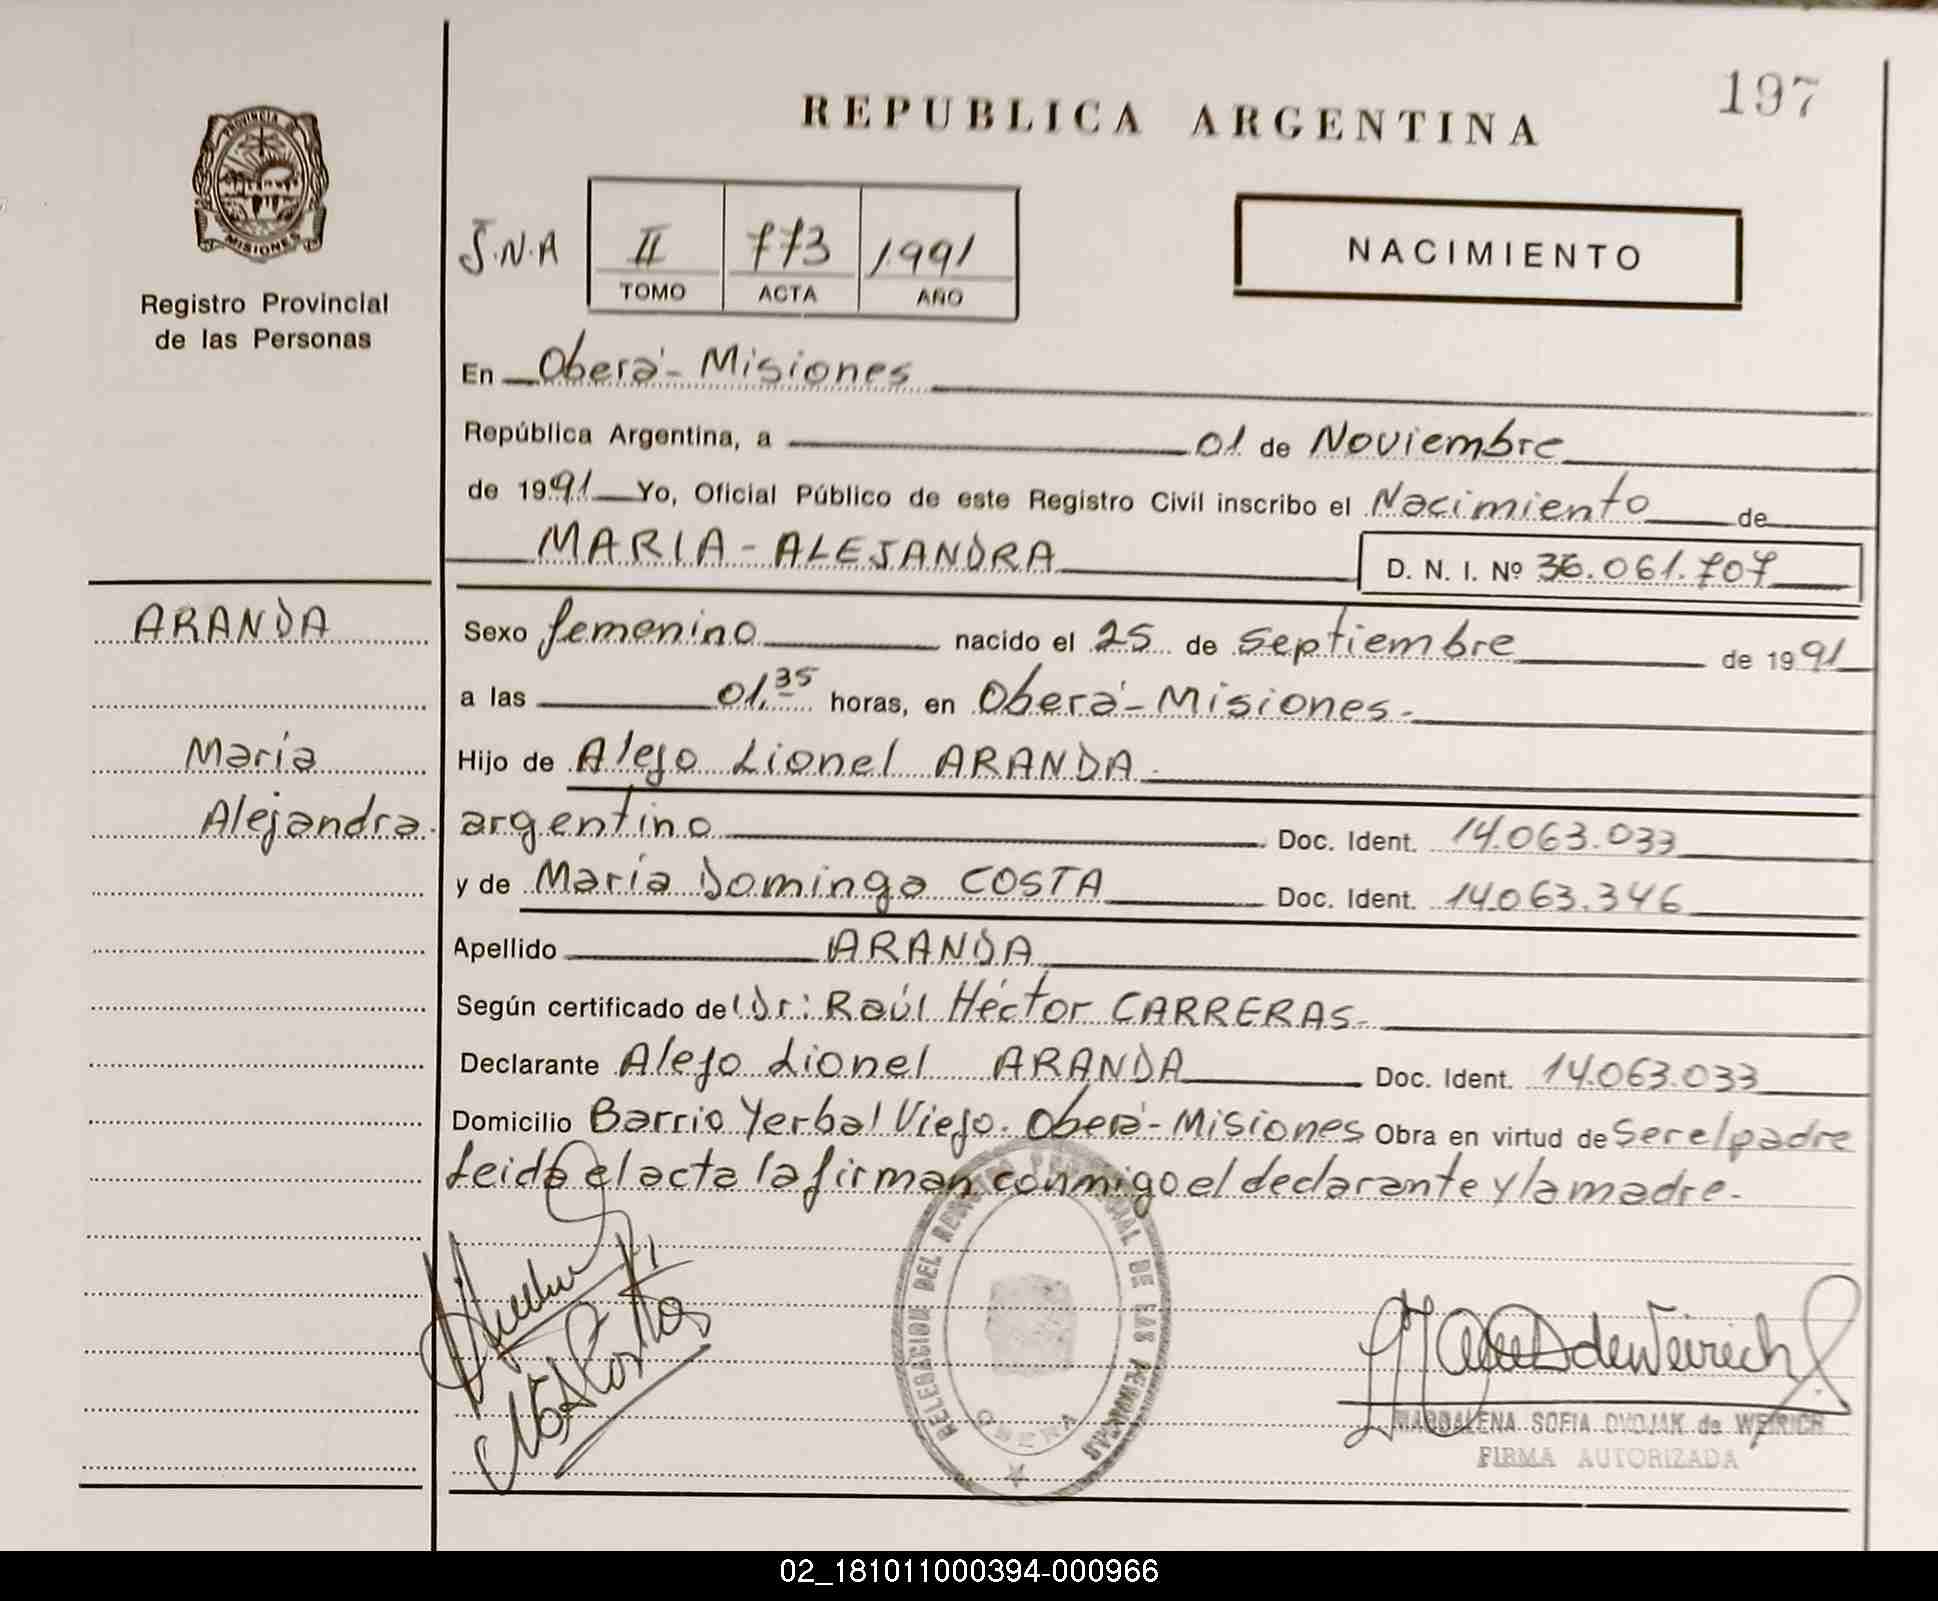 197
REPUBLICA ARGENTINA
PROVINCIA DE
MISIONES
Registro Provincial
de las Personas
J.N.A II 773 1991
TOMO ACTA AÑO
NACIMIENTO
En Oberá - Misiones
República Argentina, a 01 de Noviembre
de 1991 Yo, Oficial Público de este Registro Civil inscribo el Nacimiento de
MARIA - ALEJANDRA D. N. I. Nº 36.061.707
ARANDA
María
Alejandra.
Sexo femenino nacido el 25 de Septiembre de 1991
a las 01,35 horas, en Oberá - Misiones.
Hijo de Alejo Lionel ARANDA.
argentino Doc. Ident. 14.063.033
y de María Dominga COSTA Doc. Ident. 14.063.346
Apellido ARANDA
Según certificado del Dr: Raúl Héctor CARRERAS.
Declarante Alejo Lionel ARANDA Doc. Ident. 14.063.033
Domicilio Barrio Yerbal Viejo. Oberá - Misiones Obra en virtud de ser el padre
Leida el acta la firman conmigo el declarante y la madre.
DELEGACION DEL REGISTRO PROVINCIAL DE LAS PERSONAS
OBERA
MAGDALENA SOFIA DVOJAK de WEIRICH
FIRMA AUTORIZADA
02_181011000394-000966